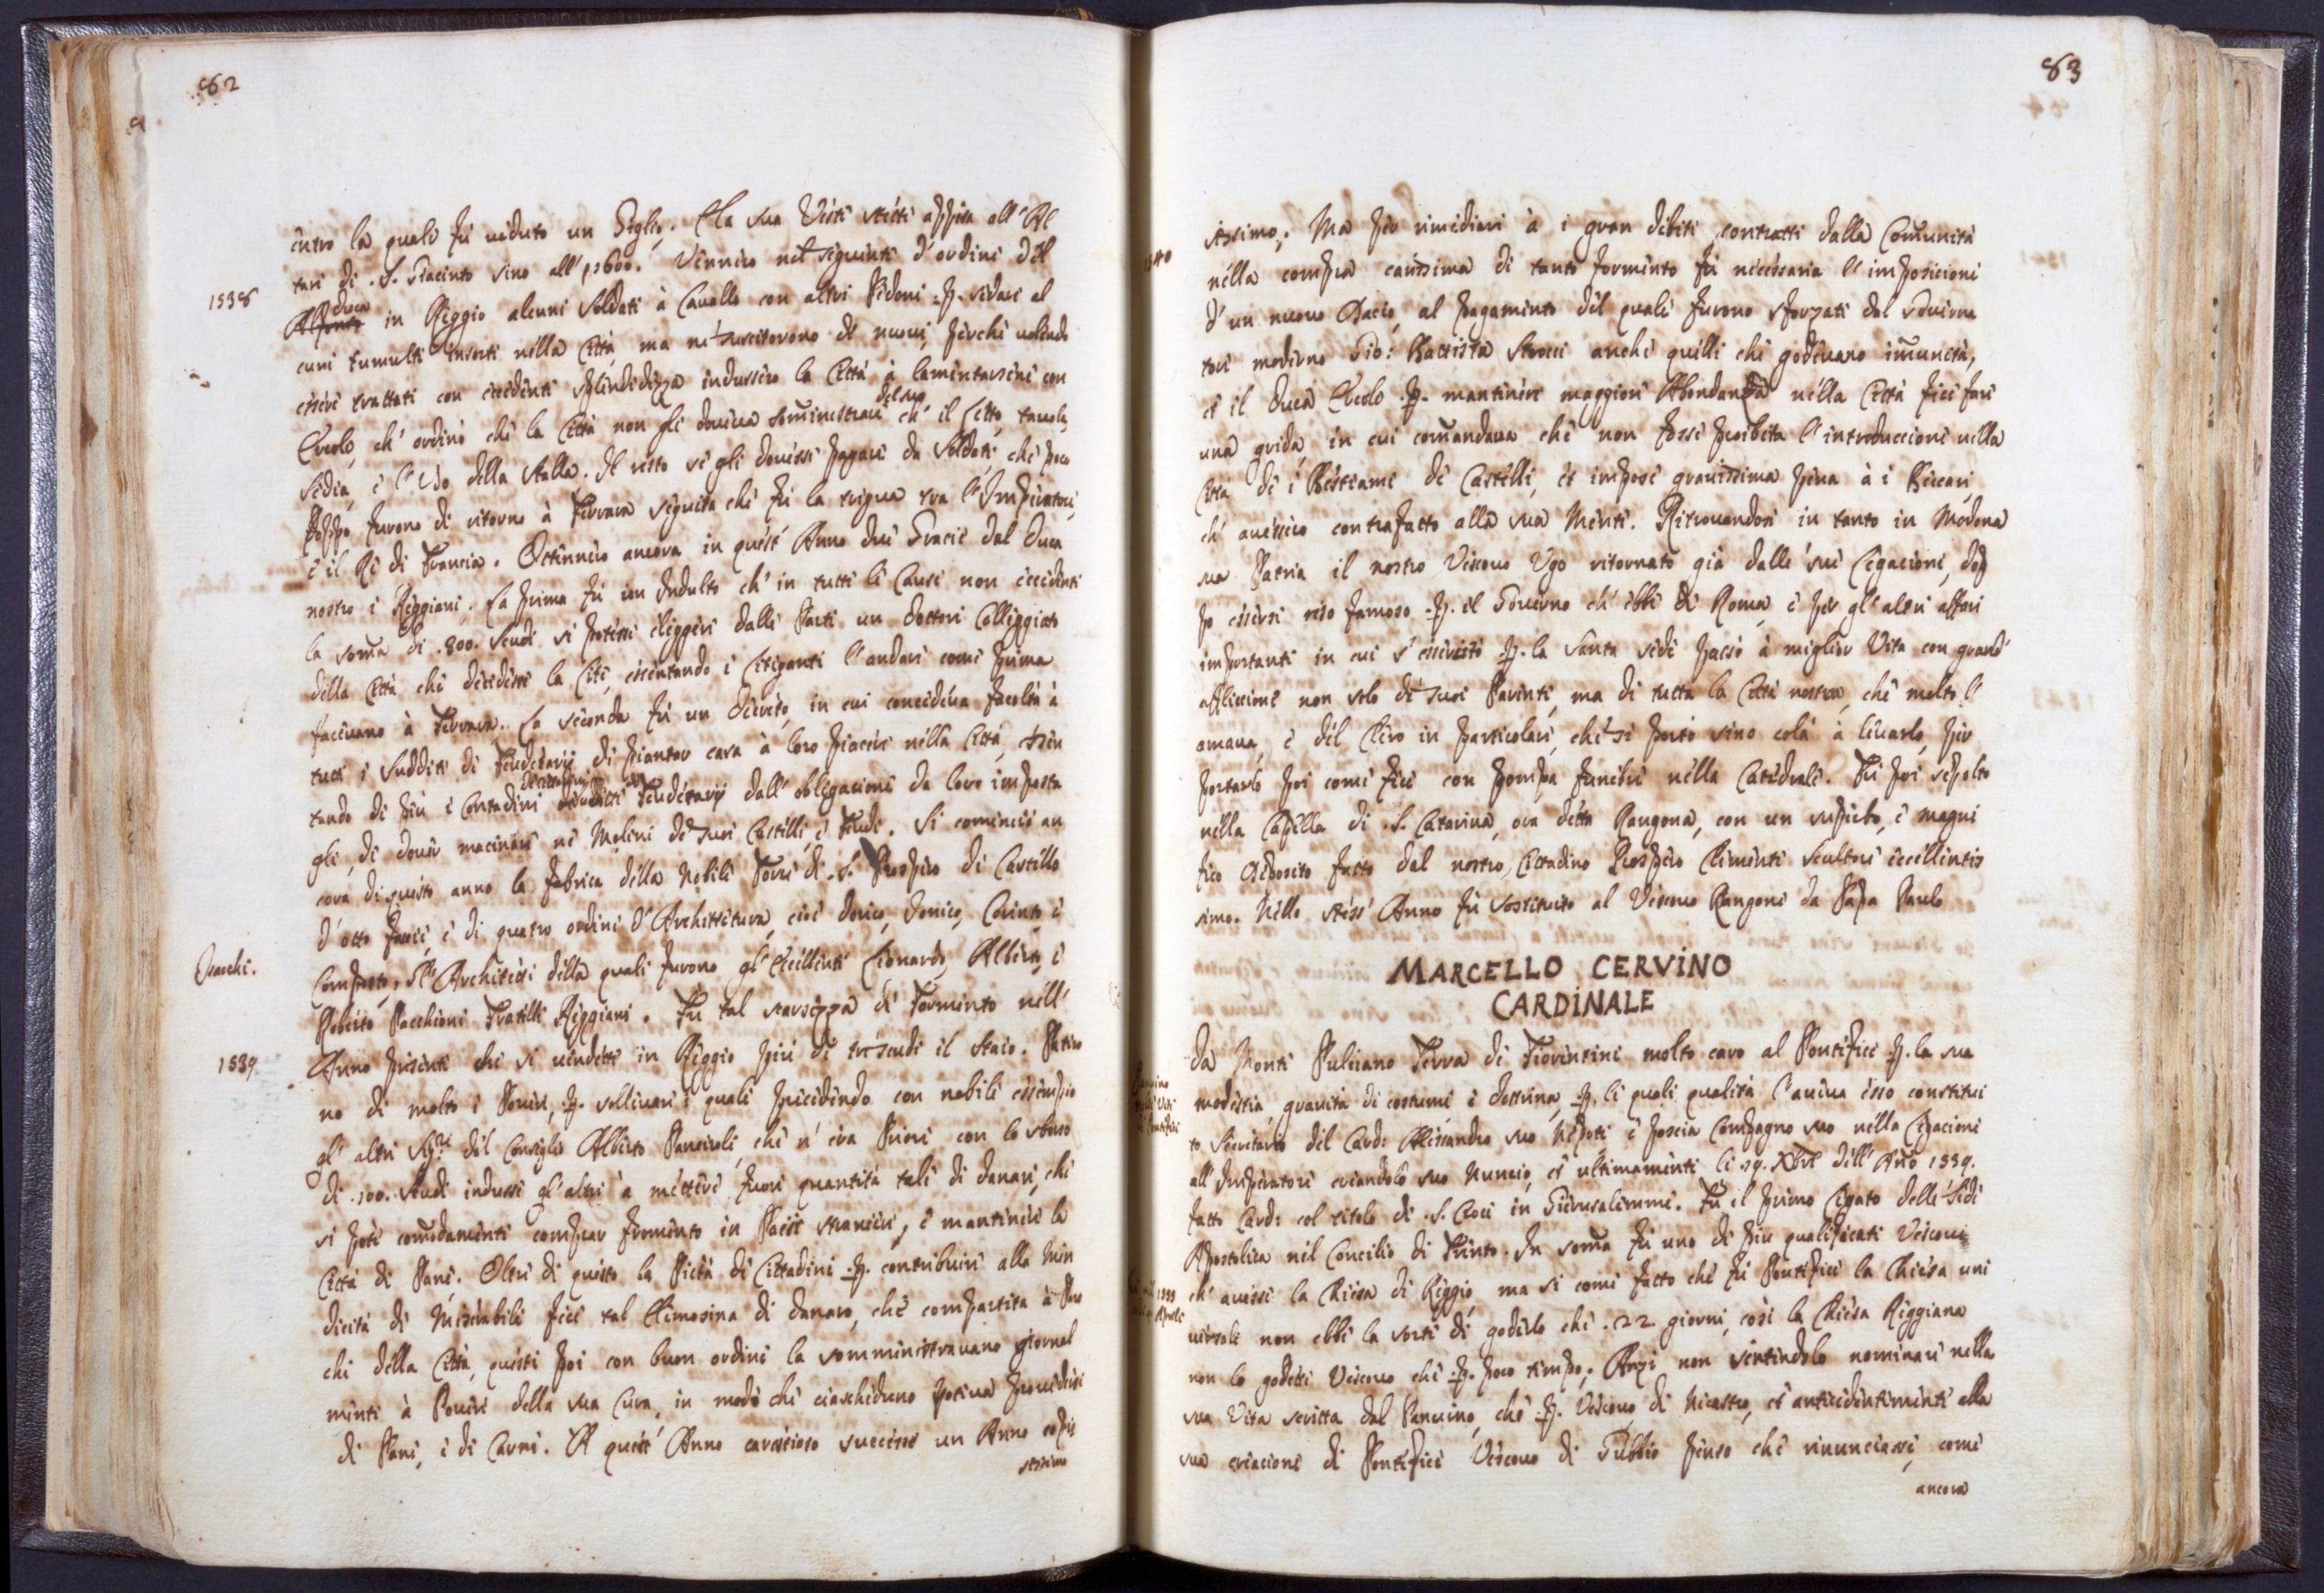 82
entro la quale fù veduto un Giglio. E la sua Veste stette appesa all'Al
tare di .S. Giacinto sino all'1600. Vennero nel seguente d'ordine del
1538
Alfonso Duca in Reggio alcuni Soldati à Cavallo con altri Pedoni .p. sedare al
cuni tumulti insorti nella Città, ma ne suscitorono de nuovi, perche volendo
essere trattati con eccedente splendidezza indussero la Città à lamentarsene con
Ercole, ch'ordinò che la Città non gli doveva somministrare del suo ch'il Letto, tavola,
sedia, e l'Uso della stalla. Il resto se gli dovesse pagare da Soldati, che poco
doppo furono di ritorno à Ferrara seguita che fù la tregua tra l'Imperatore,
e il Rè di Francia. Ottennero ancora in quest'Anno due Gracie dal Duca
nostro i Reggiani. La prima fù un Indulto ch'in tutte le Cause non eccedenti
la soma di .800. Scudi si potesse eleggere dalle Parti un Dottore Collegiato
della Città che decidesse la Lite, essentando i Litiganti l'andare come prima
facevano à Ferrara. La seconda fù un Decreto, in cui concedeva facoltà à
tutti i Sudditi di Feudatarij di piantar casa à loro piacere nella Città, essen
tando di più i Contadini de Cittadini Feudatarij dall'obligacione da loro imposta
gli, di dover macinare ne Molini de suoi Castelli, e Feudi. Si cominciò an
cora di questo anno la fabrica della Nobile Torre di .S. Prospero di Castello
d'otto faccie, e di quatro ordini d'Architettura, cioè dorico, Ionico, Corinto, e
Pacchi.
Composto, Gl'Architetti della quale furono gl'Eccellenti Leonardo, Alberto, e
Roberto Pacchioni Fratelli Reggiani. Fù tal scarsezza di Formento nell'
1539
Anno presente che si vendette in Reggio più di tre scudi il Staio. Pativa
no di molto i Poveri, .p. sollevare i quali precedendo con nobile essempio
gl'altri Sig.ri del Consiglio Alberto Panciroli, che n'era Priore con lo sborso
di .100. Scudi indusse gl'altri à mettere fuori quantità tale di danari, che
si potè comodamente comprar Formento in Paese straniere, e mantenere la
Città di Pane. Oltre di questo la Pietà di Cittadini .p. contribuire alla Men
dicità di Miserabili fece tal Elemosina di danaro, che compartita à Paro
chi della Città, questi poi con buon ordine la somministravano giornal
mente à Poveri della sua Cura, in modo che ciascheduno poteva provedersi
di Pane, e di Carne. A quest'Anno carestioso successe un Anno copio
sissimo
83
1540
sissimo; Ma per rimediare à i gran debiti contratti dalla Comunità
nella compra carissima di tanto formento fù necessaria l'imposicione
d'un nuovo Dacio, al pagamento del quale furono sforzati dal Governa
tore moderno Gio: Battista Strocci anche quelli che godevano imunità,
et il Duca Ercole .p. mantenere maggiore Abondanza nella Città fece fare
una grida, in cui comandava che non fosse proibita l'introduccione nella
Città de i Bestiami di Castelli, et impose gravissima pena à i Beccari,
ch'avessero contrafatto alla sua Mente. Ritrovandosi in tanto in Modena
sua Patria il nostro Vescovo Ugo ritornato già dalle sue Legacioni, dop
po essersi reso famoso .p. il Governo ch'ebbe di Roma, e per gl'altri affari
importanti in cui s'essercitò .p. la Santa Sede passò à miglior Vita con grand'
affliccione non solo de suoi Parenti, ma di tutta la Città nostra, che molto l'
amava, e del Clero in particolare, che si portò sino colà à levarlo, per
portarlo poi come fece con pompa funebre nella Catedrale. Fù poi sepolto
nella Capella di .S. Catarina, ora detta Rangona, con un superbo, e magni
fico Deposito fatto dal nostro Cittadino Prospero Clemente Scultore eccellentis
simo. Nello stess'Anno fù sostituito al Vescovo Rangone da Papa Paulo
MARCELLO CERVINO
CARDINALE
da Monte Pulciano Terra di Fiorentini molto caro al Pontefice .p. la sua
modestia, gravità di costumi, e dottrina, .p. le quali qualità l'aveva esso constitui
to Secretario del Card: Alessandro suo Nepote, e poscia Compagno suo nella Legacione
all'Imperatore creandolo suo Nuncio, et ultimamente li .19. Xbre dell'Año 1539.
fatto Card: col titolo di .S. Croce in Gierusalemme. Fù il primo Legato della Sede
Apostolica nel Concilio di Trento. In soma fù uno di più qualificati Vescovi
ch'avesse la Chiesa di Reggio, ma si come fatto che fù Pontefice la Chiesa uni
versale non ebbe la sorte di goderlo che .22. giorni, così la Chiesa Reggiana
non lo godette Vescovo che .p. poco tempo; Anzi non sentendolo nominare nella
sua Vita scritta dal Panvino, che .p. Vescovo di Nicastro, et antecedentemente alla
sua creacione di Pontefice Vescovo di Gubbio penso che rinunciasse, come
ancora